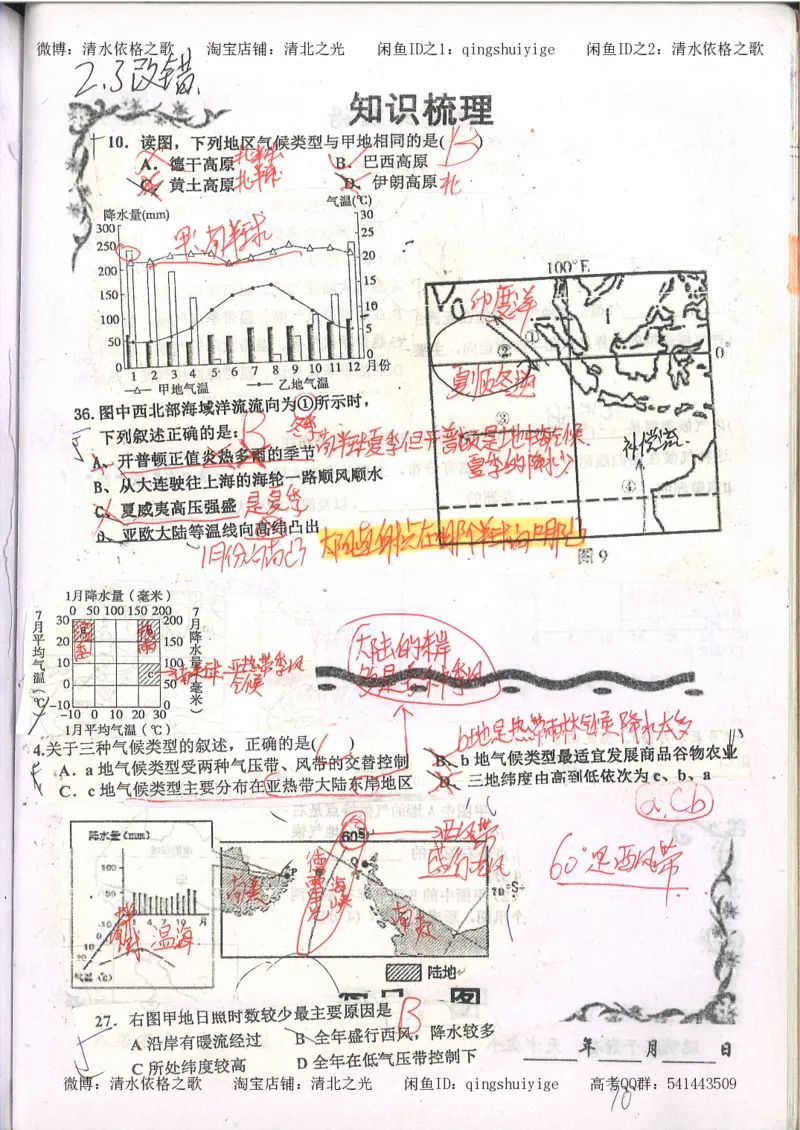 微博：清水依格之歌 淘宝店铺：清北之光 闲鱼ID之1：qingshuiyige 闲鱼ID之2：清水依格之歌
2.3改错
知识梳理
10．读图，下列地区气候类型与甲地相同的是( B )
A．德干高原 北半球 B．巴西高原
C．黄土高原 北半球 D．伊朗高原 北
降水量(mm) 气温(℃)
甲：南半球
300 250 200 150 100 50 0
30 25 20 15 10 5 0
1 2 3 4 5 6 7 8 9 10 11 12 月份
甲地气温 乙地气温
100°E
印度洋
夏顺冬逆
0°
① ② ③ ④
补偿流
图 9
36．图中西北部海域洋流流向为①所示时，
下列叙述正确的是： B 冬季
A、开普顿正值炎热多雨的季节 南半球夏季但开普敦是地中海气候
夏季的降水少
B、从大连驶往上海的海轮一路顺风顺水
C、夏威夷高压强盛 是夏季
D、亚欧大陆等温线向高纬凸出
1月份向高凸 太阳直射点在哪个半球向哪凸
1月降水量（毫米）
0 50 100 150 200
7月平均气温（℃）
30 20 10 0 -10
7月降水量（毫米）
200 150 100 50 0
-10 0 10 20 30
1月平均气温（℃）
c
亚热带季风
气候
大陆的东岸
多是季风
b地是热带雨林气候 降水太多
4.关于三种气候类型的叙述，正确的是( C )
A．a 地气候类型受两种气压带、风带的交替控制 B、b 地气候类型最适宜发展商品谷物农业
C．c 地气候类型主要分布在亚热带大陆东岸地区 D、三地纬度由高到低依次为 c、b、a
a.c b
降水量(mm)
100 50 0
1 4 7 10 月
10
0
气温(℃)
温海
60°S
西风带
盛行西风
南美
德雷克
海峡
P
甲
Q
南极
70°S
陆地
60°是西风带
27．右图甲地日照时数较少最主要原因是 B
A 沿岸有暖流经过 B 全年盛行西风，降水较多
C 所处纬度较高 D 全年在低气压带控制下
年 月 日
微博：清水依格之歌 淘宝店铺：清北之光 闲鱼ID：qingshuiyige 高考QQ群：541443509